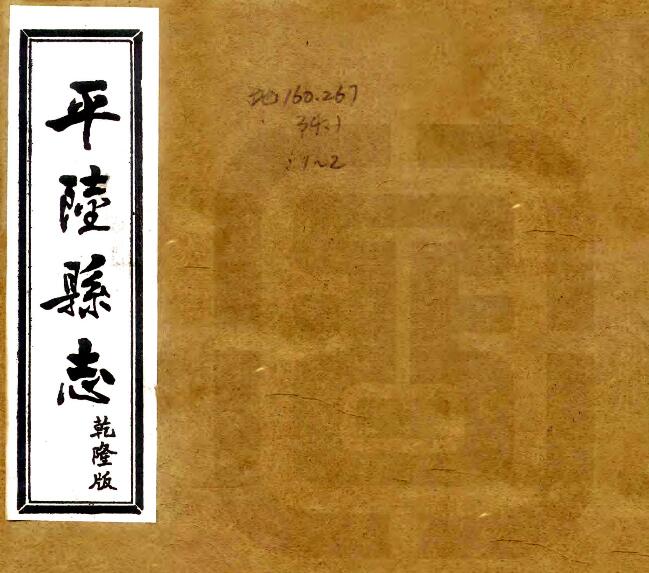 平陸縣志
乾隆版
地160.267
34.1
:1~2